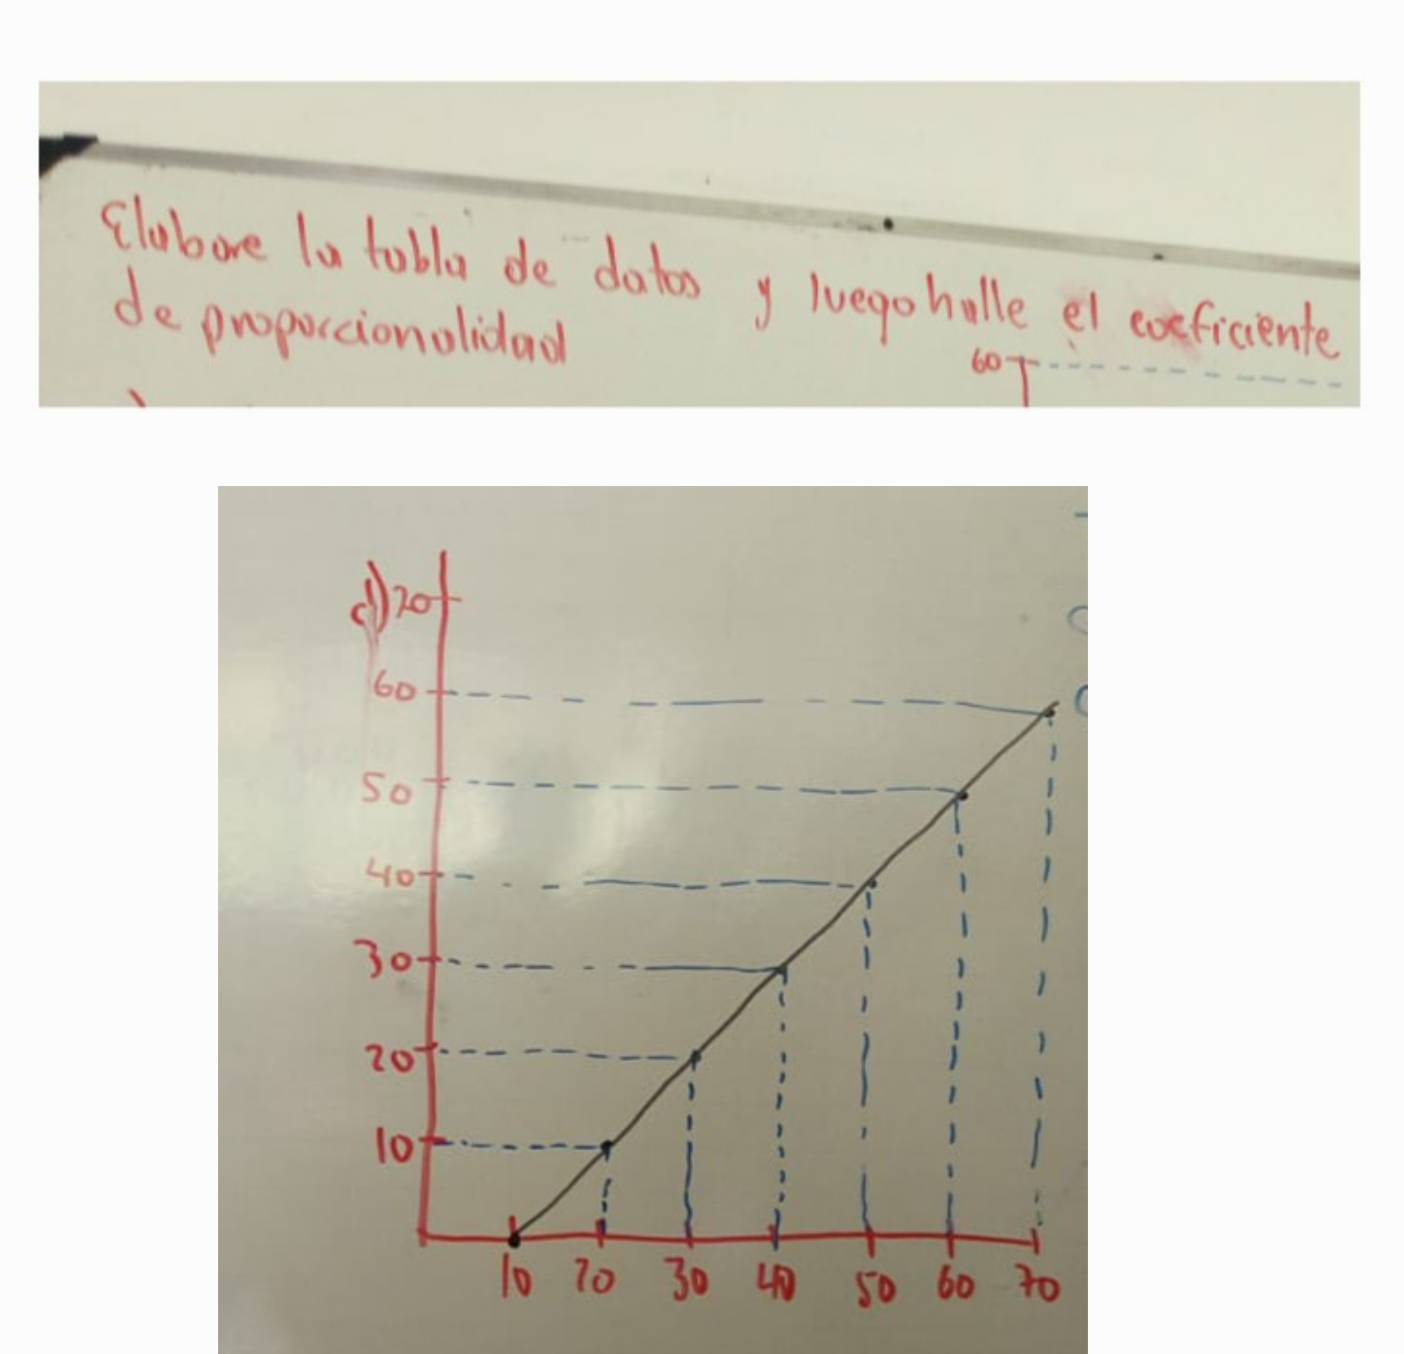 Elabore la tabla de datos y luego halle el coeficiente
de proporcionalidad
60
d) 70
60
50
40
30
20
10
10 20 30 40 50 60 70